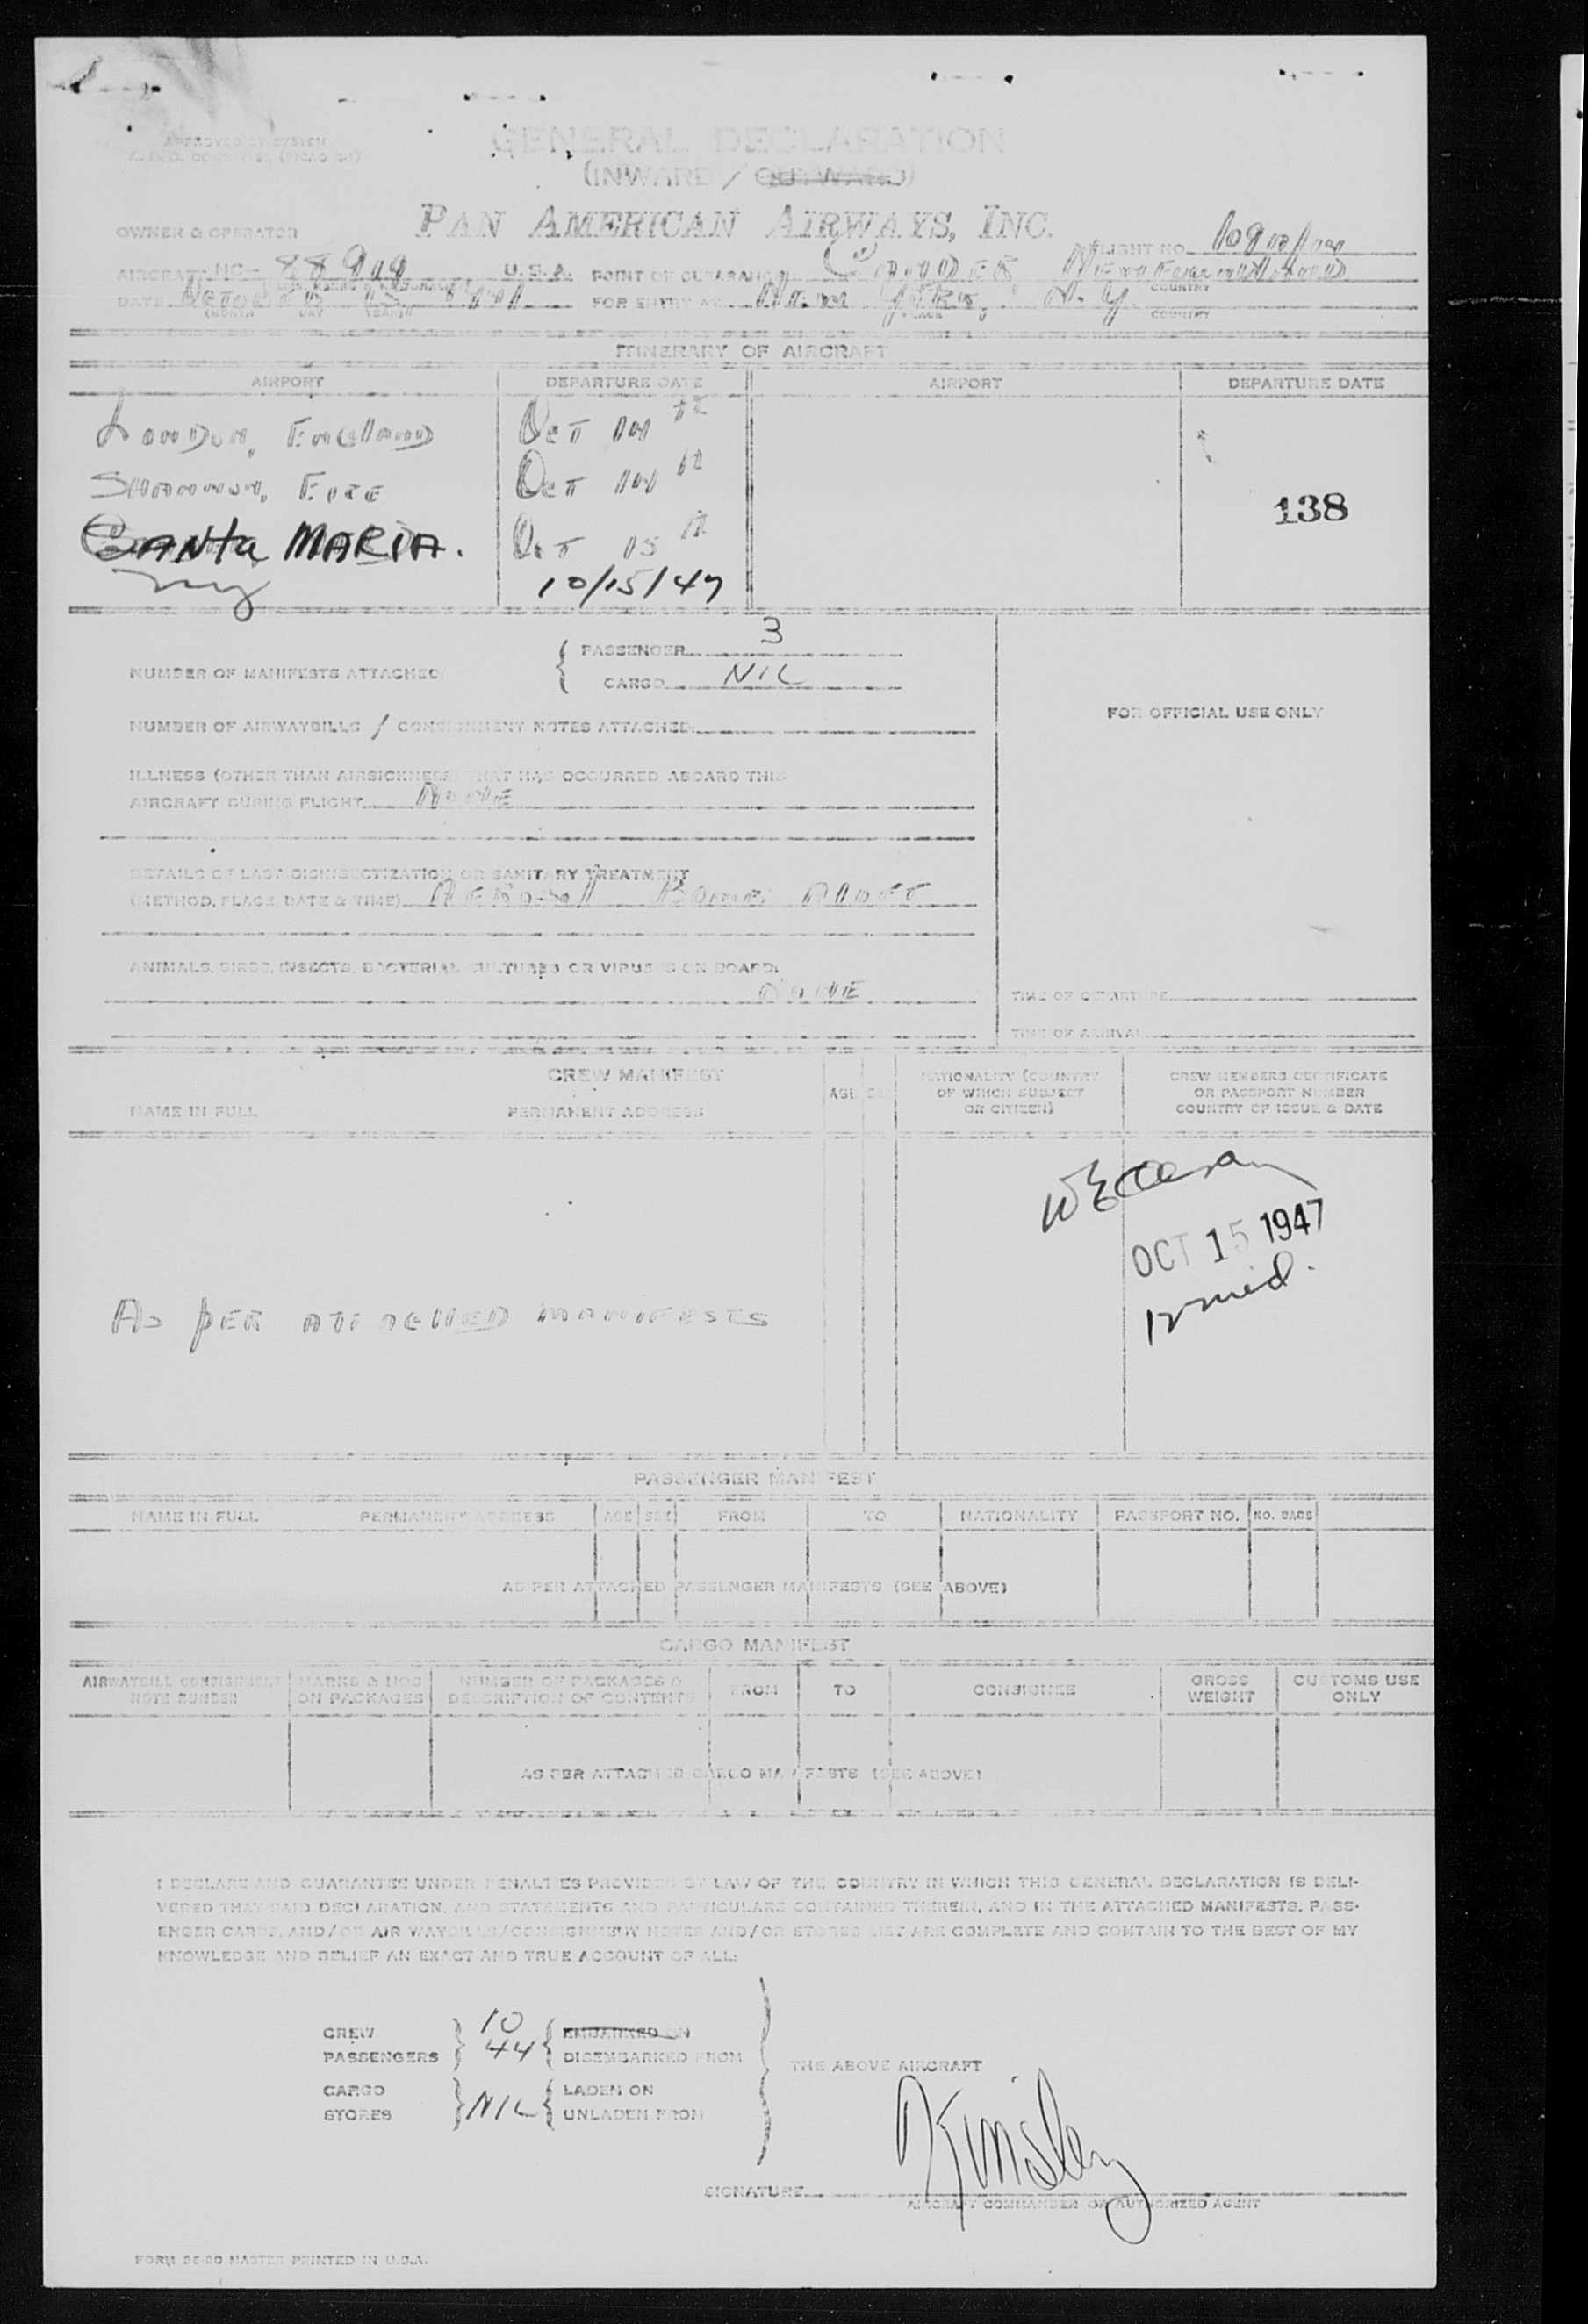 APPROVED BY SYSTEM
GENERAL DECLARATION
(INWARD / OUTWARD)
OWNER & OPERATOR PAN AMERICAN AIRWAYS, INC.
FLIGHT NO.
AIRCRAFT NC- U.S.A. POINT OF CLEARANCE GANDER NEWFOUNDLAND
COUNTRY
DATE OCTOBER 15, FOR ENTRY AT New York, N.Y.
(MONTH DAY YEAR) PLACE COUNTRY
ITINERARY OF AIRCRAFT
AIRPORT DEPARTURE DATE AIRPORT DEPARTURE DATE
LONDON, ENGLAND OCT 14 TH
SHANNON, EIRE OCT 14
138
SANTA MARIA. OCT 15
ny 10/15/47
NUMBER OF MANIFESTS ATTACHED: { PASSENGER 3
CARGO NIL
NUMBER OF AIRWAYBILLS / CONSIGNMENT NOTES ATTACHED:
FOR OFFICIAL USE ONLY
ILLNESS (OTHER THAN AIRSICKNESS) THAT HAS OCCURRED ABOARD THIS
AIRCRAFT DURING FLIGHT NONE
DETAILS OF LAST DISINSECTIZATION OR SANITARY TREATMENT
(METHOD, PLACE DATE & TIME) AEROSOL BOMB
ANIMALS, BIRDS, INSECTS, BACTERIAL CULTURES OR VIRUSES ON BOARD:
NONE
TIME OF DEPARTURE
TIME OF ARRIVAL
CREW MANIFEST
NAME IN FULL PERMANENT ADDRESS AGE SEX NATIONALITY (COUNTRY OF WHICH SUBJECT OR CITIZEN) CREW MEMBERS CERTIFICATE OR PASSPORT NUMBER COUNTRY OF ISSUE & DATE
OCT 15 1947
12 mid.
AS PER ATTACHED MANIFESTS
PASSENGER MANIFEST
NAME IN FULL PERMANENT ADDRESS AGE SEX FROM TO NATIONALITY PASSPORT NO. NO. BAGS
AS PER ATTACHED PASSENGER MANIFESTS (SEE ABOVE)
CARGO MANIFEST
AIRWAYBILL CONSIGNMENT NOTE NUMBER MARKS & NOS ON PACKAGES NUMBER OF PACKAGES & DESCRIPTION OF CONTENTS FROM TO CONSIGNEE GROSS WEIGHT CUSTOMS USE ONLY
AS PER ATTACHED CARGO MANIFESTS (SEE ABOVE)
I DECLARE AND GUARANTEE UNDER PENALTIES PROVIDED BY LAW OF THE COUNTRY IN WHICH THIS GENERAL DECLARATION IS DELI-
VERED THAT SAID DECLARATION, AND STATEMENTS AND PARTICULARS CONTAINED THEREIN, AND IN THE ATTACHED MANIFESTS, PASS-
ENGER CARGO, AND/OR AIR WAYBILLS/CONSIGNMENT NOTES AND/OR STORES LIST ARE COMPLETE AND CONTAIN TO THE BEST OF MY
KNOWLEDGE AND BELIEF AN EXACT AND TRUE ACCOUNT OF ALL:
CREW } 10 { EMBARKED ON
PASSENGERS } 44 { DISEMBARKED FROM
THE ABOVE AIRCRAFT
CARGO } NIL { LADEN ON
STORES UNLADEN FROM
SIGNATURE Kinsley
AIRCRAFT COMMANDER OR AUTHORIZED AGENT
MASTER PRINTED IN U.S.A.